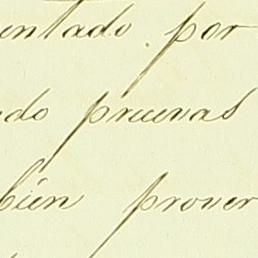 entado por
ndo pruevas
bién prover